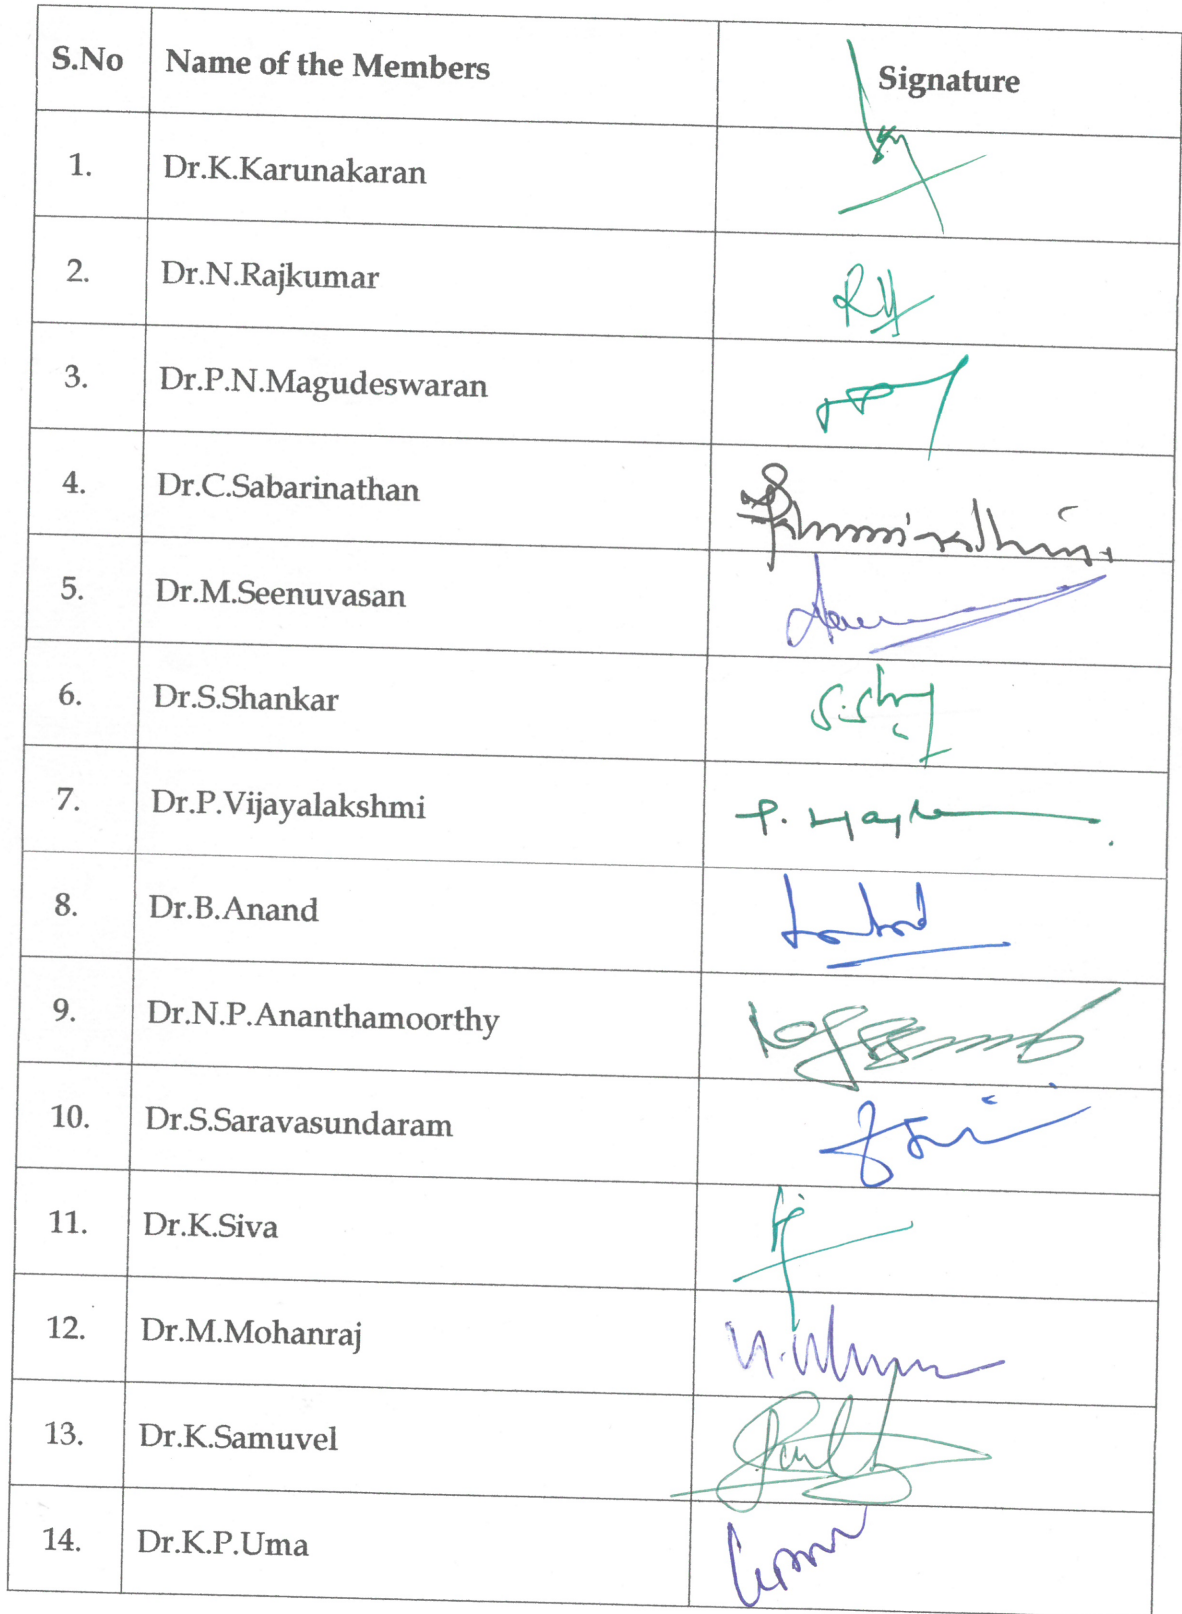 S.No Name of the Members Signature
1. Dr.K.Karunakaran
2. Dr.N.Rajkumar
3. Dr.P.N.Magudeswaran
4. Dr.C.Sabarinathan
5. Dr.M.Seenuvasan
6. Dr.S.Shankar
7. Dr.P.Vijayalakshmi
8. Dr.B.Anand
9. Dr.N.P.Ananthamoorthy
10. Dr.S.Saravasundaram
11. Dr.K.Siva
12. Dr.M.Mohanraj
13. Dr.K.Samuvel
14. Dr.K.P.Uma